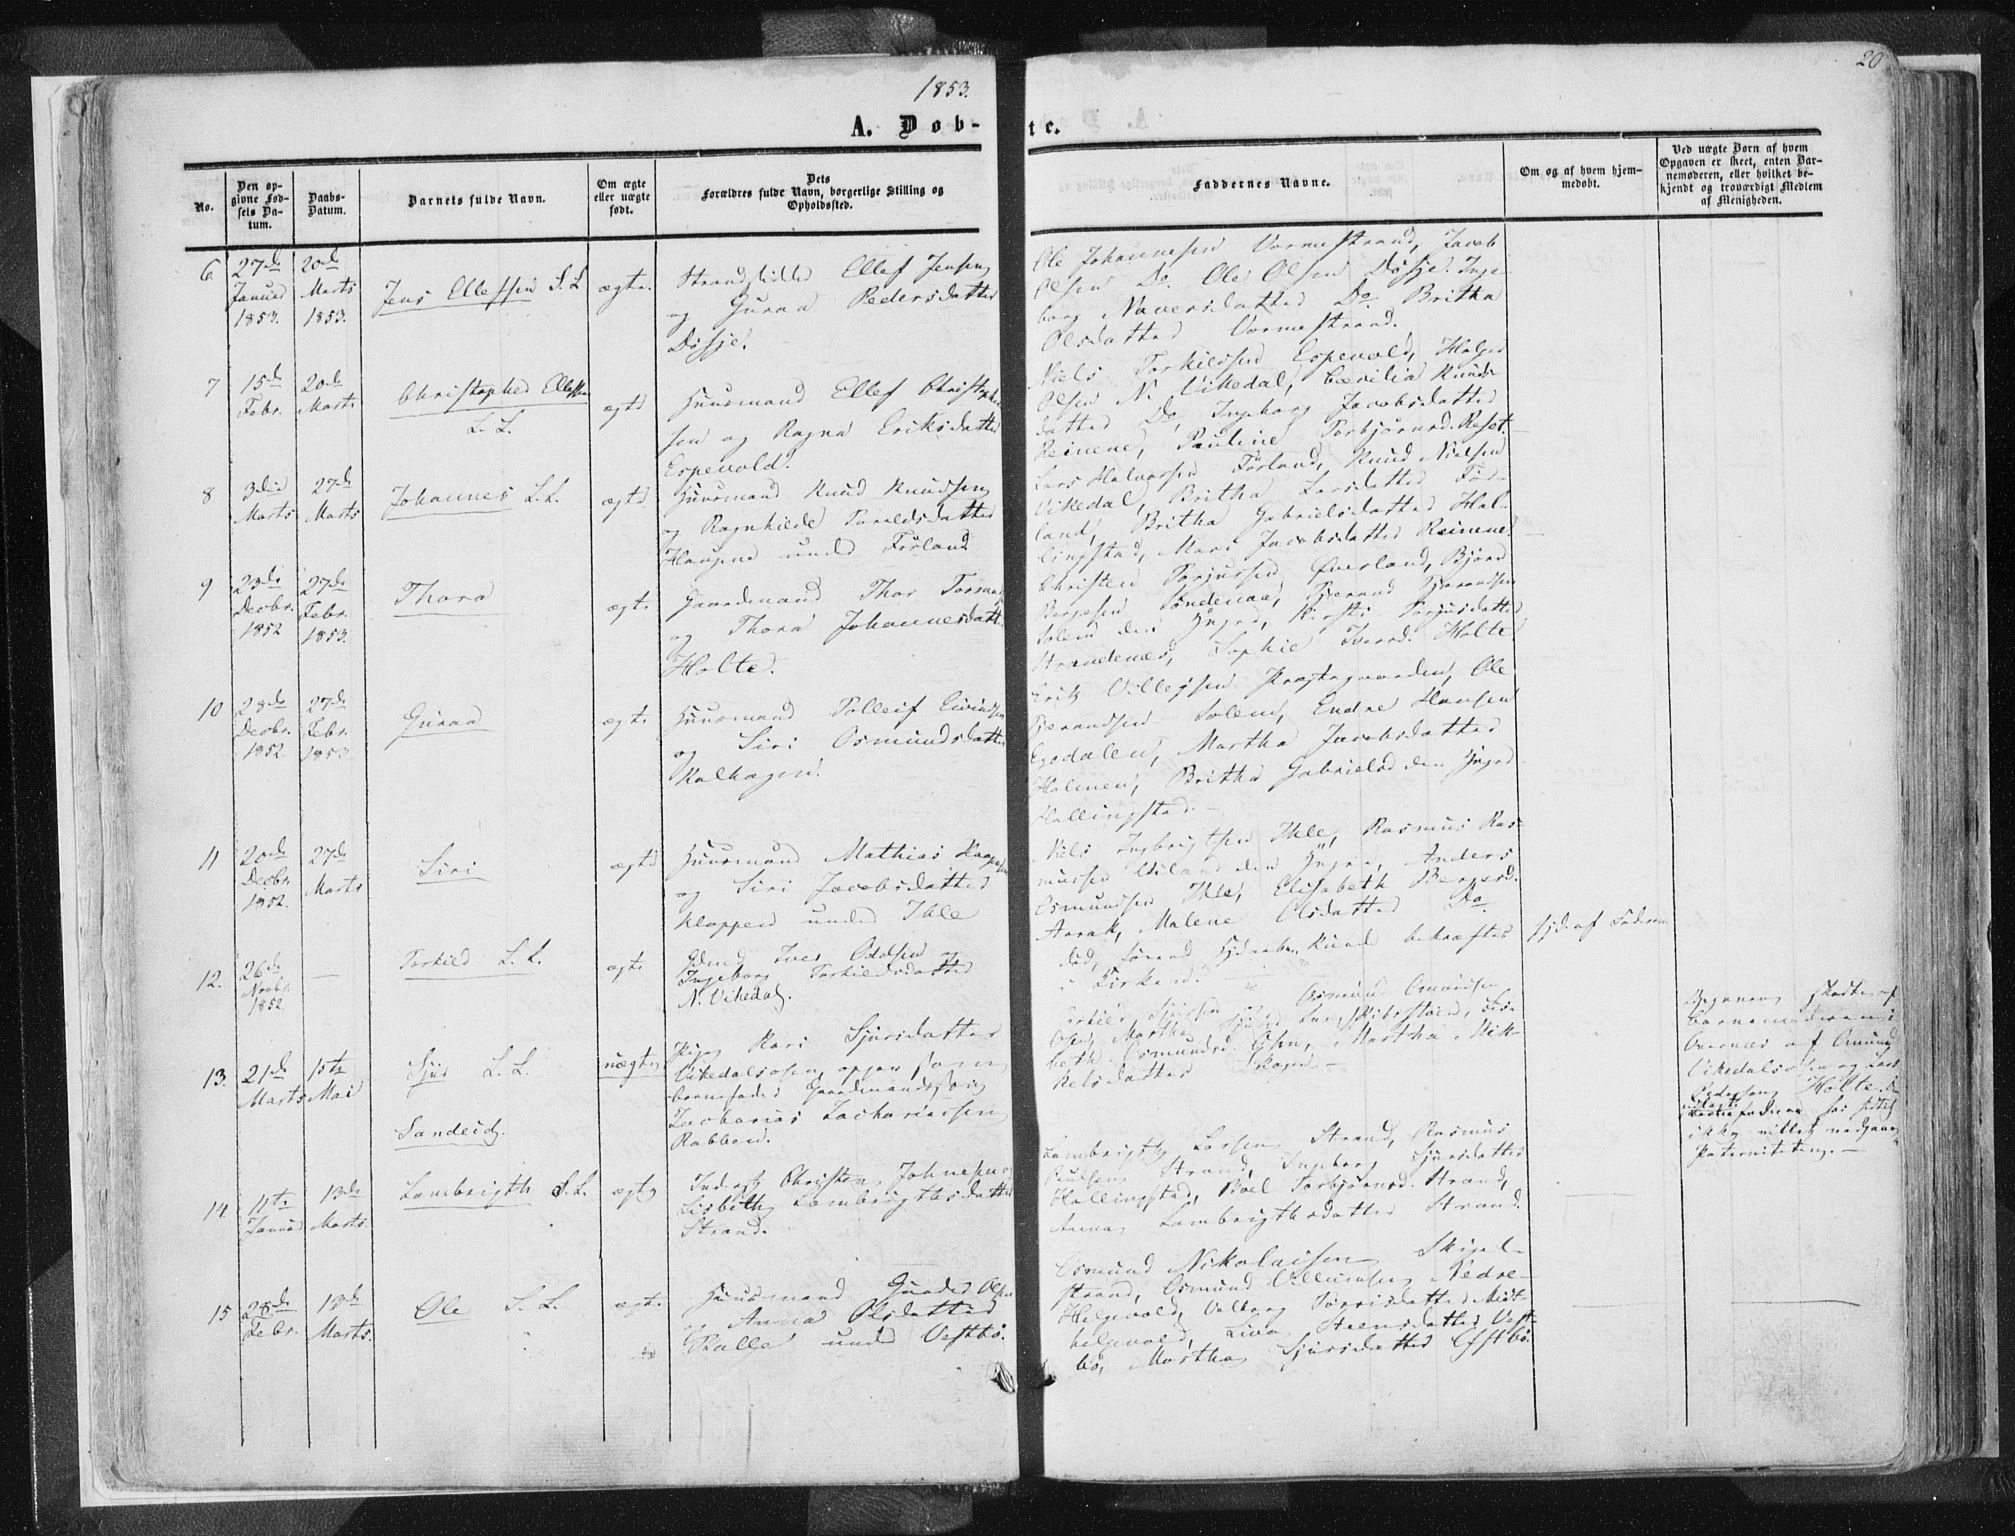 1853.
20
A. Døb-
te.
No.
Den op-
givne Fød-
sels Da-
tum.
Daabs-
Datum.
Barnets fulde Navn.
Om ægte
eller uægte
født.
Dets
Forældres fulde Navn, borgerlige Stilling og
Opholdssted.
Faddernes Navne.
Om og af hvem hjem-
medøbt.
Ved uægte Børn af hvem
Opgaven er skeet, enten Bar-
nemoderen, eller hvilket be-
kjendt og troværdigt Medlem
af Menigheden.
6.
27de
Januar
1853.
20de
Marts
1853.
Jens Ellefsen S. L.
ægte.
Strandsidder Ellef Jensen
og Guraa Pedersdatter
Døsje.
Ole Johannesen Vormestrand, Jacob
Olsen Do. Ole Olsen Døsje. Inge-
borg Naversdatter Do Britha
Olsdatter Vormestrand.
7
15de
Febr.
20de
Marts
Christopher Ellefsen
L. L.
ægte
Huusmand Ellef Christophe
sen og Ragna Eriksdatter
Espevold.
Niels Torkildsen Espevold, Holger
Olsen N. Vikedal, Cæcilia Knuds-
datter Do, Ingeborg Jacobsdatter
Reinene, Pauline Torbjørnsd. Røset.
8
3die
Marts
27de
Marts
Johannes L. L.
ægte
Huusmand Knud Knudsen
og Ragnhilde Toraldsdatter
Haugene under Førland
Lars Halvorsen Førland, Knud Nielsen
Vikedal, Britha Larsdatter Før-
land, Britha Gabrielsdatter Hal-
lingstad, Mari Jacobsdatter Reinene.
9
23de
Decbr.
1852
27de
Febr.
1853.
Thora
ægte
Gaardmand Thor Tormo
og Thora Johannesdatt
Holte.
Christen Torjussen Øverland, Bjørn
Bergesen Søndenaa, Tjerand Tjerandsen
Solem den Yngre, Kirsti Torjusdatter
Strandenæs, Sophie Iversd. Holte
10
28de
Decbr.
1852.
27de
Febr.
1853
Guraa
ægte
Huusmand Tolleif Eivindsen
og Siri Osmundsdatter
Kalhagen.
Erik Villefsen Prestegaarden, Ole
Tjerandsen Solem, Endre Hansen
Egsdalen, Martha Jacobsdatter
Holmen, Britha Gabrielsd den Yngre
Hallingstad.
11
20de
Decbr.
1852.
27de
Marts
Siri
ægte
Huusmand Mathias
og Siri Jacobsdatter
Kloppen under Ihle
Niels Ingbrigtsen Ihle, Rasmus Ras-
mussen Uiland den Yngre, Anders
Osmundsen Ihle, Elisabeth Bergesd.
Aarak, Malene Olsdatter Do
12.
26de
Novbr.
1852.
Torkild L. L.
ægte
Gdmd Iver Oddsen og
Ingeborg Torkildsdatter
N. Vikedal.
død, førend Hjdaaben kunde bekræftes
i Kirken.
Hjd. af Faderen
13.
21de
Marts
15te
Mai
Sjur L. L.
Sandeid.
uægte
Pige Kari Sjursdatter
Vikedalsosen, opgav som
Barnefader Gaardmandssøn
Zacharias Zachariassen
Rabben.
Torkild Sjursen og Osmund Osmundsen
Osen, Martha
beth Osmundsd. Osen, Martha Mik-
kelsdatter Skogn.
Opgaven skeete af
Barnemoderen i
Overvær af Omund
Vikedalsosen og Lars
Pedersen Holte. Den
udlagte
Barnefader har siden
ikke villet vedgaae
Paterniteten.
14.
11te
Januar
13de
Marts
Lambrigth S. L.
ægte
Inderst Christen Johnsen og
Lisbeth Lambrigthsdatter
Strand.
Lambrigth Larsen Strand, Rasmus
Paulsen Strand, Ingeborg Sjursdatter
Hallingstad, Boel Torbjørnsd. Strand,
Anna Lambrigthsdatter Strand.
15
28de
Febr.
13de
Marts.
Ole S. L.
ægte
Huusmand Gunder Olsen
og Anna Olsdatter
Rulle under Vestbø.
Osmund Nikolaisen Skigel-
strand, Osmund Villumsen Nedre-
Helgevold, Valborg Tørrisdatter Midt-
helgevold, Liva Steensdatter Vest-
bø, Martha Sjursdatter Estbø.